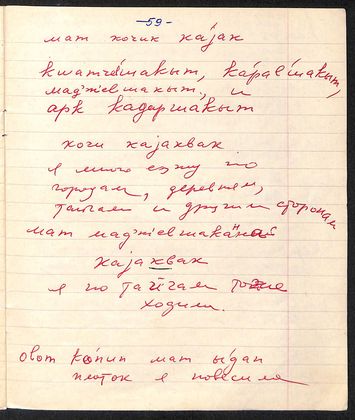 -59-
мат кочик кајак
кватчы́шакыт, ка́рав́шакыт,
маџ́жевшакыт, и
арк кадаршакыт
кочи кајахвак
я много езжу по
городам, деревням,
тайгам и другим сторонам
мат маџжиевшакӓнай
кајахвак
я по тайгам тоже
ходила.
овот ко́пип мат ы́дап
платок я повесила